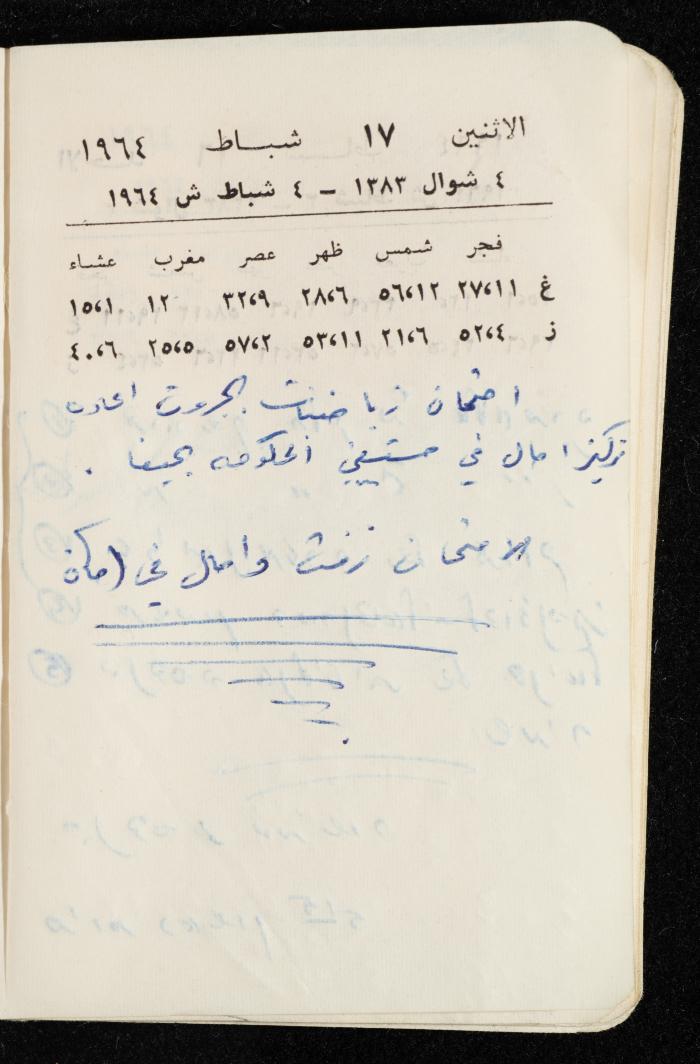 الاثنين ١٧ شباط ١٩٦٤
٤ شوال ١٣٨٣ – ٤ شباط ش ١٩٦٤
فجر شمس ظهر عصر مغرب عشاء
غ ٢٧،١١ ٥٦،١٢ ٢٨،٦ ٣٢،٩ ١٢ ١٥،١
ز ٥٢،٤ ٢١،٦ ٥٣،١١ ٥٧،٢ ٢٥،٥ ٤٠،٦
امتحان رياضيات الجروت اعادة
تركيز امال في مستشفى الحكومه بحيفا .
الامتحان زفت وامال في